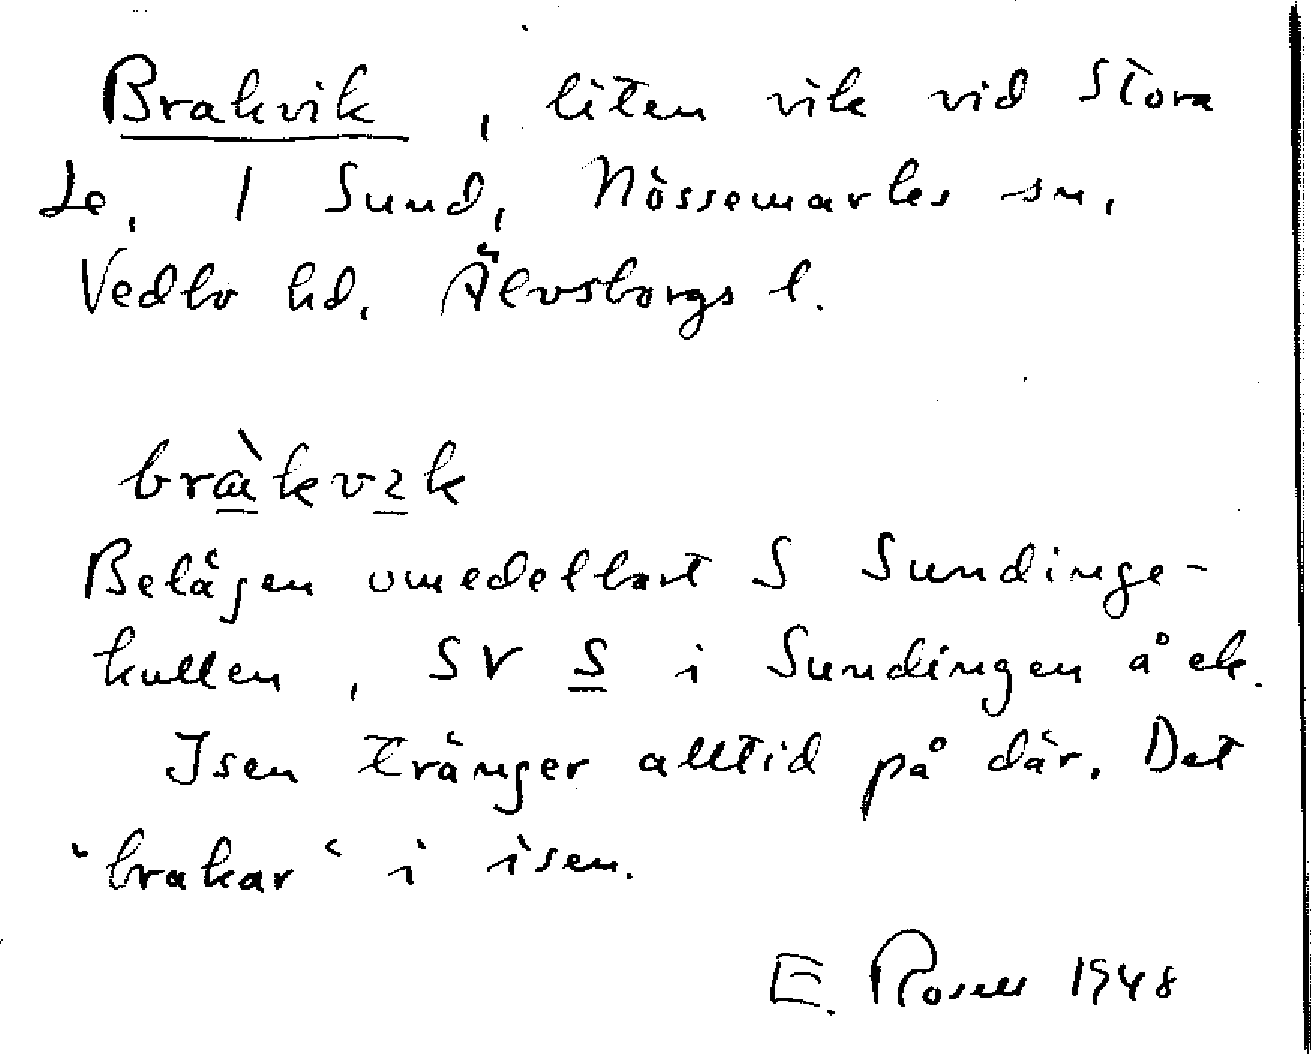 Brakvik, liten vik vid Stora
Le, 1 Sund, Nössemarks sn,
Vedbo hd, Älvsborgs l.
bràkvık
Belägen omedelbart S Sundinge-
kullen, SV S i Sundingen å ek.
Isen tränger alltid på där. Det
"brakar" i isen.
E. Rosell 1948